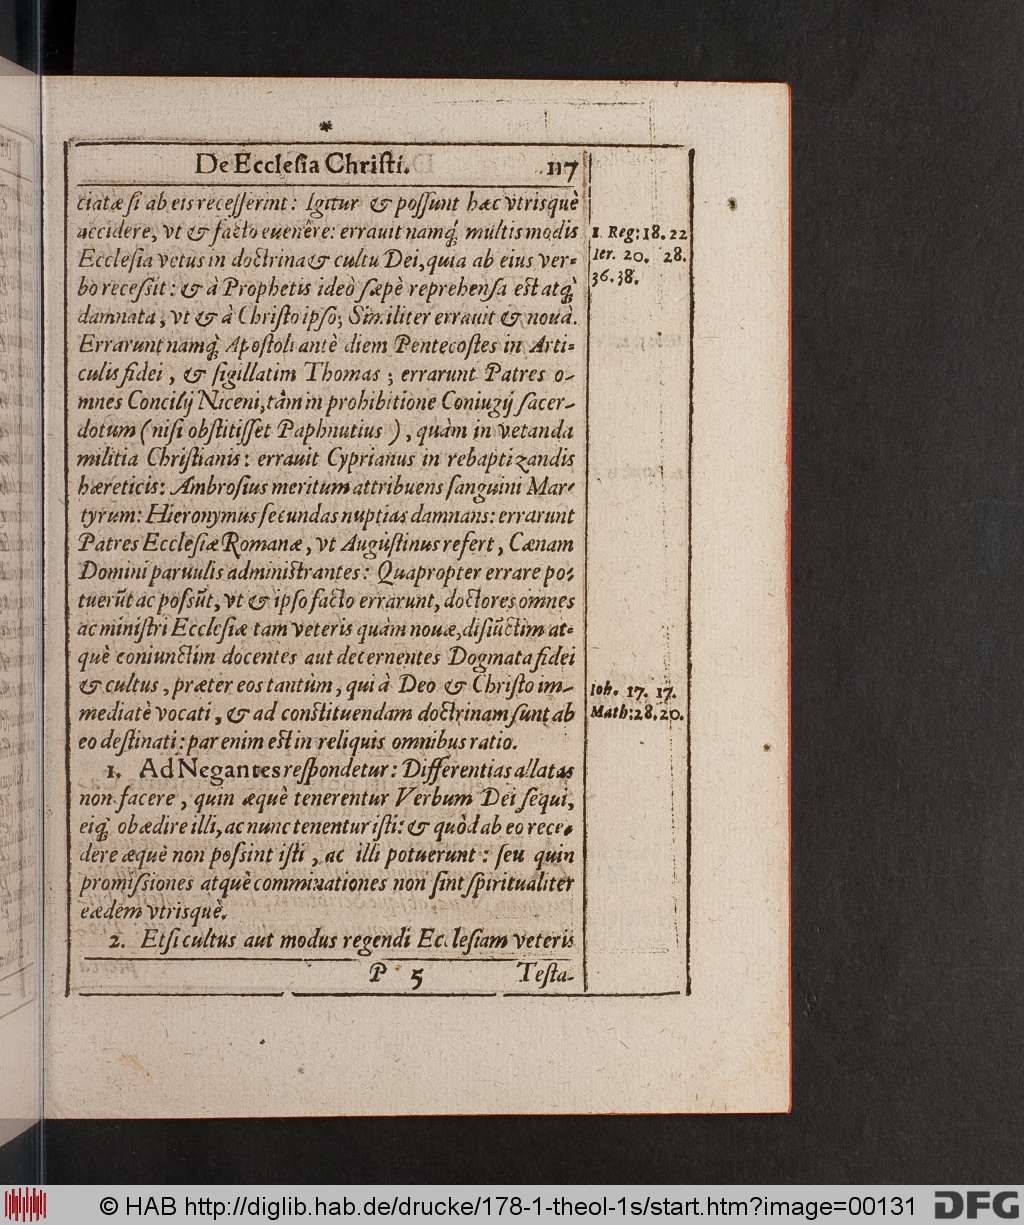 De Ecclesia Christi. 117
ciatæ si ab eis recesserint: Igitur & possunt hæc vtrisquè
accidere, vt & facto euenêre: errauit namq́; multis modis
Ecclesia vetus in doctrina & cultu Dei, quia ab eius ver-
bo recessit: & à Prophetis ideò sæpè reprehensa est atq́;
damnata, vt & à Christo ipso; Similiter errauit & nouà.
Errarunt namq́; Apostoli antè diem Pentecostes in Arti-
culis fidei, & sigillatim Thomas; errarunt Patres o-
mnes Concilij Niceni, tàm in prohibitione Coniugij sacer-
dotum (nisi obstitisset Paphnutius), quàm in vetanda
militia Christianis: errauit Cyprianus in rebaptizandis
hæreticis: Ambrosius meritum attribuens sanguini Mar-
tyrum: Hieronymus secundas nuptias damnans: errarunt
Patres Ecclesiæ Romanæ, vt Augustinus refert, Cænam
Domini paruulis administrantes: Quapropter errare po-
tuerūt ac possūt, vt & ipso facto errarunt, doctores omnes
ac ministri Ecclesiæ tam veteris quàm nouæ, disiūctim at-
què coniunctim docentes aut decernentes Dogmata fidei
& cultus, præter eos tantùm, qui à Deo & Christo im-
mediatè vocati, & ad constituendam doctrinam sunt ab
eo destinati: par enim est in reliquis omnibus ratio.
1. Ad Negantes respondetur: Differentias allatas
non facere, quin æquè tenerentur Verbum Dei sequi,
eiq́; obædire illi, ac nunc tenentur isti: & quòd ab eo rece-
dere æquè non possint isti, ac illi potuerunt: seu quin
promissiones atquè comminationes non sint spiritualiter
eædem vtrisquè.
2. Etsi cultus aut modus regendi Ecclesiam veteris
P 5 Testa-
1 Reg: 18. 22
Ier. 20. 28.
36. 38.
Ioh. 17. 17.
Math: 28. 20.
© HAB http://diglib.hab.de/drucke/178-1-theol-1s/start.htm?image=00131
DFG